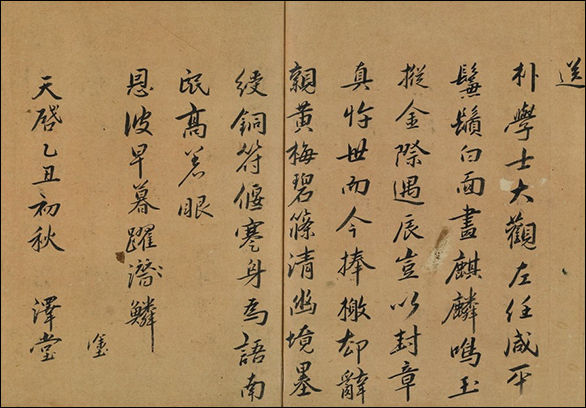 送
朴學士大觀左任咸平
鬑鬚白面畫麒麟鳴玉
摐金際遇辰豈以封章
真忤世而今捧檄却辭
親黃梅碧篠清幽境墨
綬銅符偃蹇身爲語南
氓高着眼
恩波早暮躍鱗
天啓乙丑初秋 澤堂